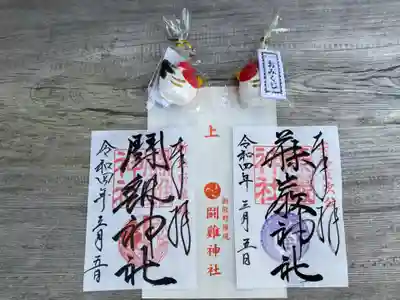 おみくじ
奉拝
藤巖神社
令和四年 三月五日
上
新熊野権現
闘雞神社
奉拝
闘雞神社
令和四年 三月五日